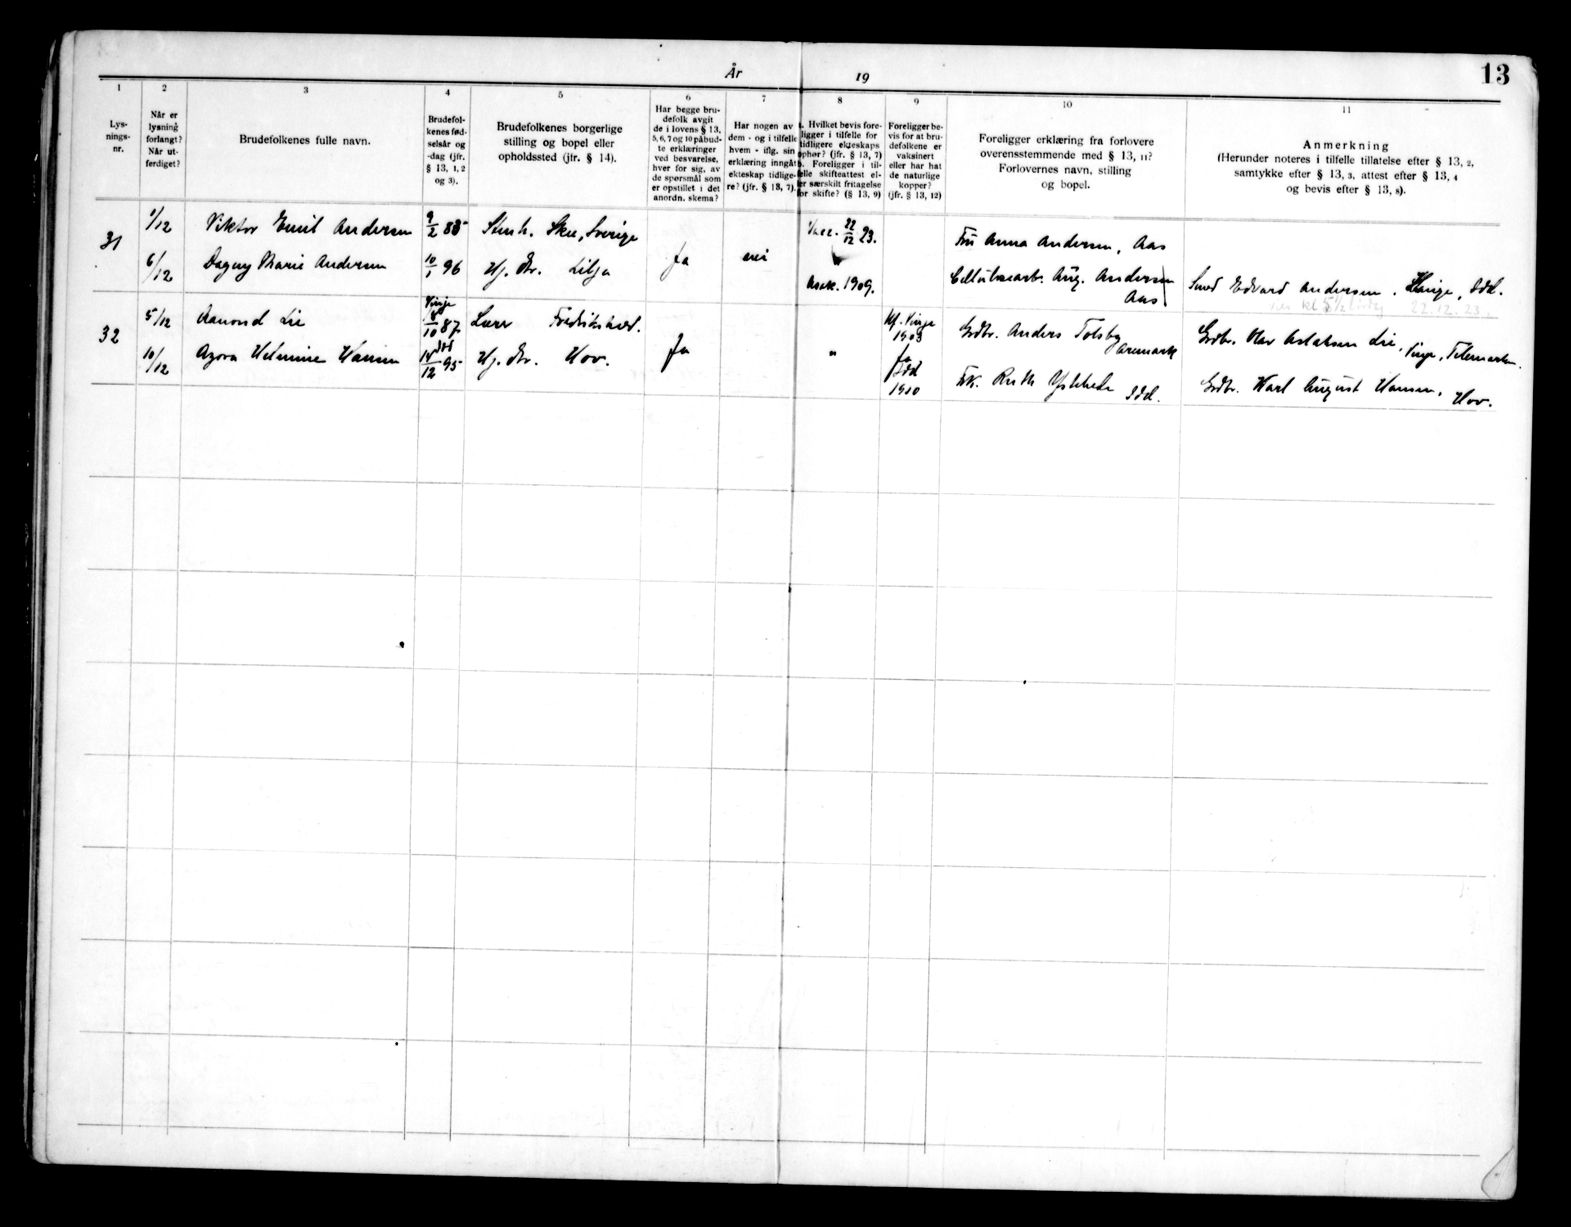 År 19
13
1
Lys-
nings-
nr.
2
Når er
lysning
forlangt?
Når ut-
ferdiget?
3
Brudefolkenes fulle navn.
4
Brudefol-
kenes fød-
selsår og
-dag (jfr.
§ 13, 1, 2
og 3).
5
Brudefolkenes borgerlige
stilling og bopel eller
opholdssted (jfr. § 14).
6
Har begge bru-
defolk avgit
de i lovens § 13,
5, 6, 7 og 10 påbud-
te erklæringer
ved besvarelse,
hver for sig, av
de spørsmål som
er opstillet i det
anordn. skema?
7
Har nogen av
dem - og i tilfelle
hvem - iflg. sin
erklæring inngått
ekteskap tidlige-
re? (jfr. § 13, 7).
8
a. Hvilket bevis fore-
ligger i tilfelle for
tidligere ekteskaps
ophør? (jfr. § 13, 7)
b. Foreligger i til-
felle skifteattest el-
ler særskilt fritagelse
for skifte? (§ 13, 9)
9
Foreligger be-
vis for at bru-
defolkene er
vaksinert
eller har hat
de naturlige
kopper?
(jfr. § 13, 12)
10
Foreligger erklæring fra forlovere
overensstemmende med § 13, 11?
Forlovernes navn, stilling
og bopel.
11
Anmerkning
(Herunder noteres i tilfelle tillatelse efter § 13, 2,
samtykke efter § 13, 3, attest efter § 13, 4
og bevis efter § 13, 8).
31
1/12
Viktor Emil Andersen
9/2 88
Stenh. Skee, Sverige
Ja
nei
Vacc. 22/12 23.
Fru Anna Andersen, Aas
6/12
Dagny Marie Andersen
10/1 96
Hj. Dr. Lilja
Attest. 1909.
Cellulosearb. Aug. Andersen
Aas
Smed Edvard Andersen, Idd.
kl 5 1/2 22.12.23.
32
5/12
Aamond Lie
Vinje
10 87
Lærer Fredrikshald.
Ja
"
Kf. Vinje
1903
Grdbr. Anders Tolsby
Aremark
Grdbr. Olav Aslaksen Lie,
Vinje, Telemarken.
10/12
Agora Helmine Hansen
Idd
14/12 95
Hj. Dr. Hov.
Ja
Idd
1910
Frk. Ruth Ystehede
Idd.
Grdbr. Karl August Hansen,
Hov.